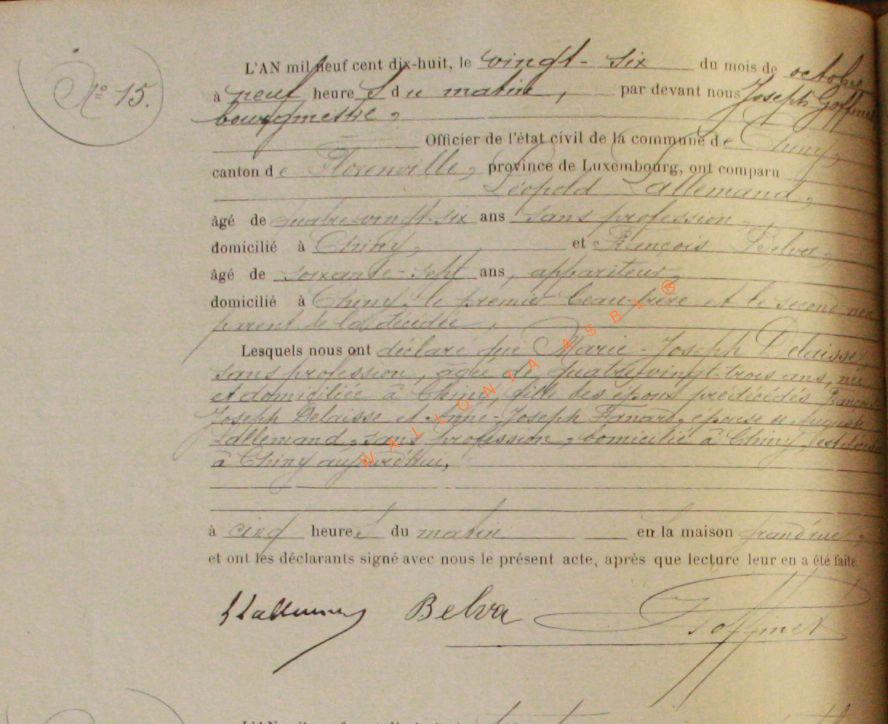 N° 15.
L'AN mil neuf cent dix-huit, le vingt-six du mois de octobre
à neuf heures du matin, par devant nous Joseph Goffinet
bourgmestre,
Officier de l'état civil de la commune de Chiny,
canton de Florenville, province de Luxembourg, ont comparu
Léopold Lallemand,
âgé de quatre-vingt-six ans sans profession,
domicilié à Chiny, et François Belva,
âgé de soixante-sept ans, appariteur,
domicilié à Chiny, le premier beau-frère et le second non
parent de la décédée,
Lesquels nous ont déclaré que Marie-Joseph Delaisse,
sans profession, âgée de quatre-vingt-trois ans, née
et domiciliée à Chiny, fille des époux prédécédés François
Joseph Delaisse et Anne-Joseph épouse de Auguste
Lallemand, sans profession, domicilié à Chiny, est décédée
à Chiny aujourd'hui,
à cinq heures du matin en la maison grand'rue,
et ont les déclarants signé avec nous le présent acte, après que lecture leur en a été faite
LLallemand Belva JGoffinet
WALLONIA ASBL ©
L'AN mil neuf cent dix-huit